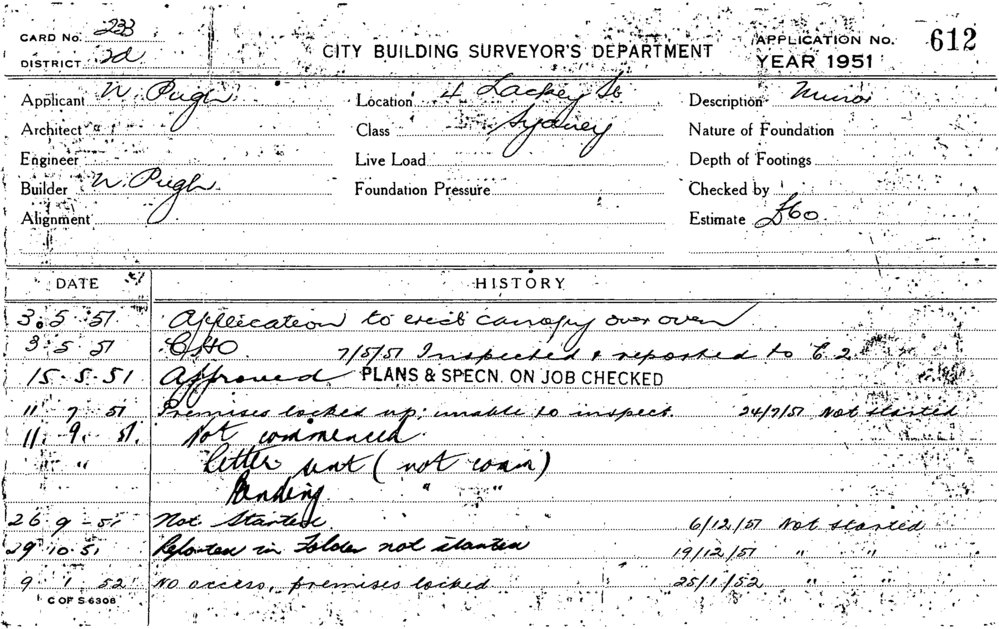 CARD No. 233
DISTRICT 2d
CITY BUILDING SURVEYOR'S DEPARTMENT
APPLICATION No. 612
YEAR 1951
Applicant W. Pugh Location 4 Lackey St Description Minor
Architect " Class Sydney Nature of Foundation
Engineer Live Load Depth of Footings
Builder W. Pugh Foundation Pressure Checked by
Alignment Estimate £60
DATE HISTORY
3.5.51 Application to erect canopy over oven
3 5 51 CHO 7/5/51 Inspected & reported to C.2
15-5-51 Approved PLANS & SPECN. ON JOB CHECKED
11 7 51 Premises locked up: unable to inspect. 24/7/51 Not started
11. 9. 51. Not commenced
" " Letter sent (not comm)
Pending " "
26 9 - 51 Not Started 6/12/51 Not started
29 10.51 Reported in Folder not started 19/12/51 " "
9 1 52 No access, premises locked 25/1/52 " "
C OF S 6308